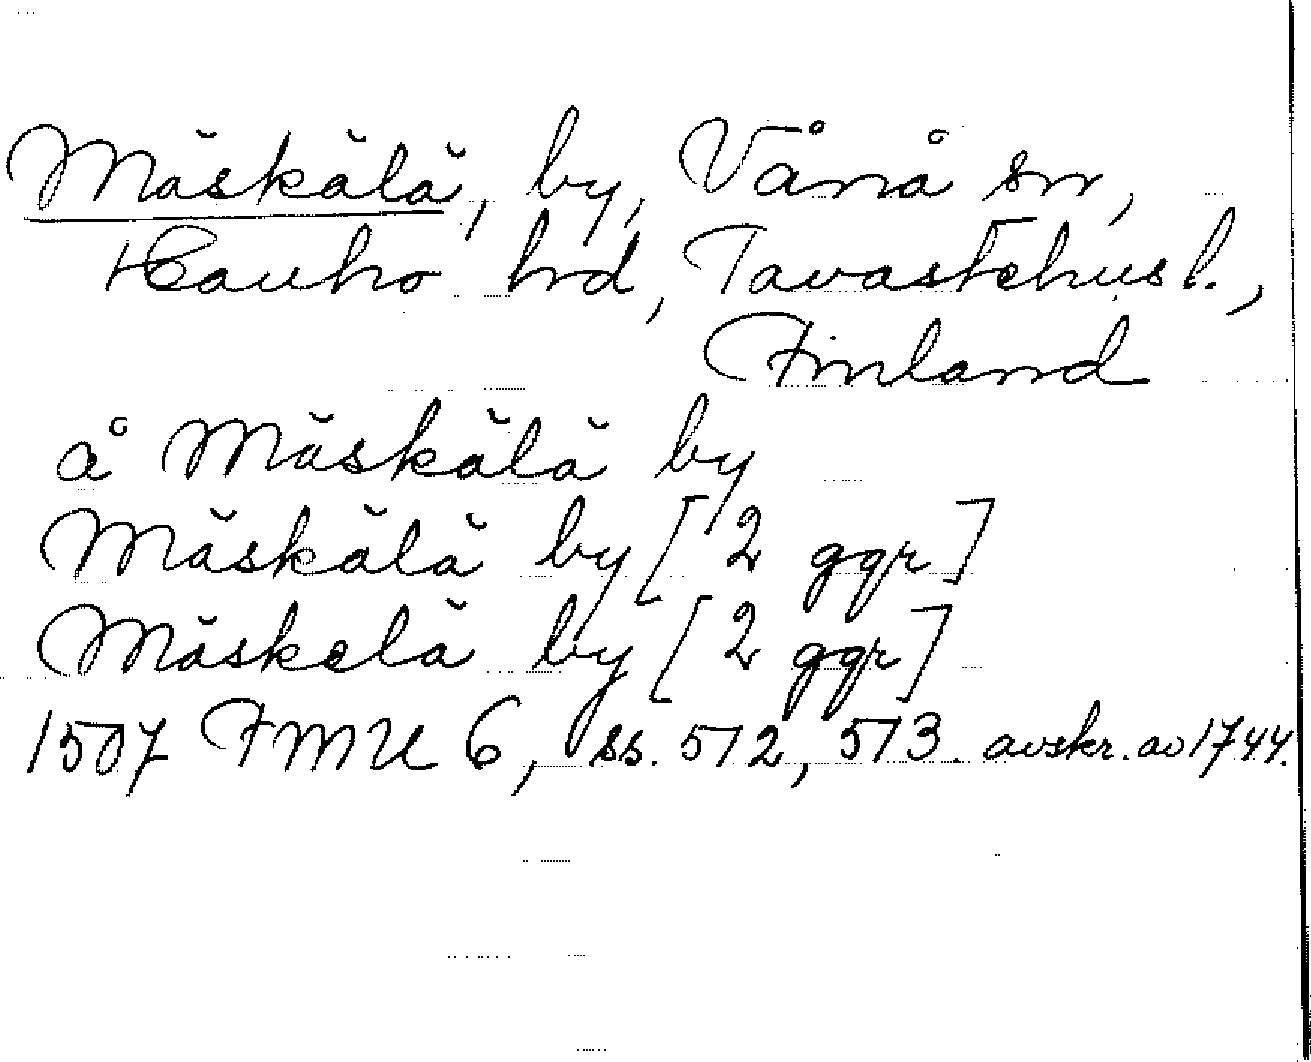 Mäskälä, by, Vånå sn,
Hauho hd, Tavastehus l.,
Finland
å Mäskälä by
Mäskälä by [2 ggr]
Mäskelä by [2 ggr]
1507 FMU 6, ss. 512, 513. avskr. av 1744.